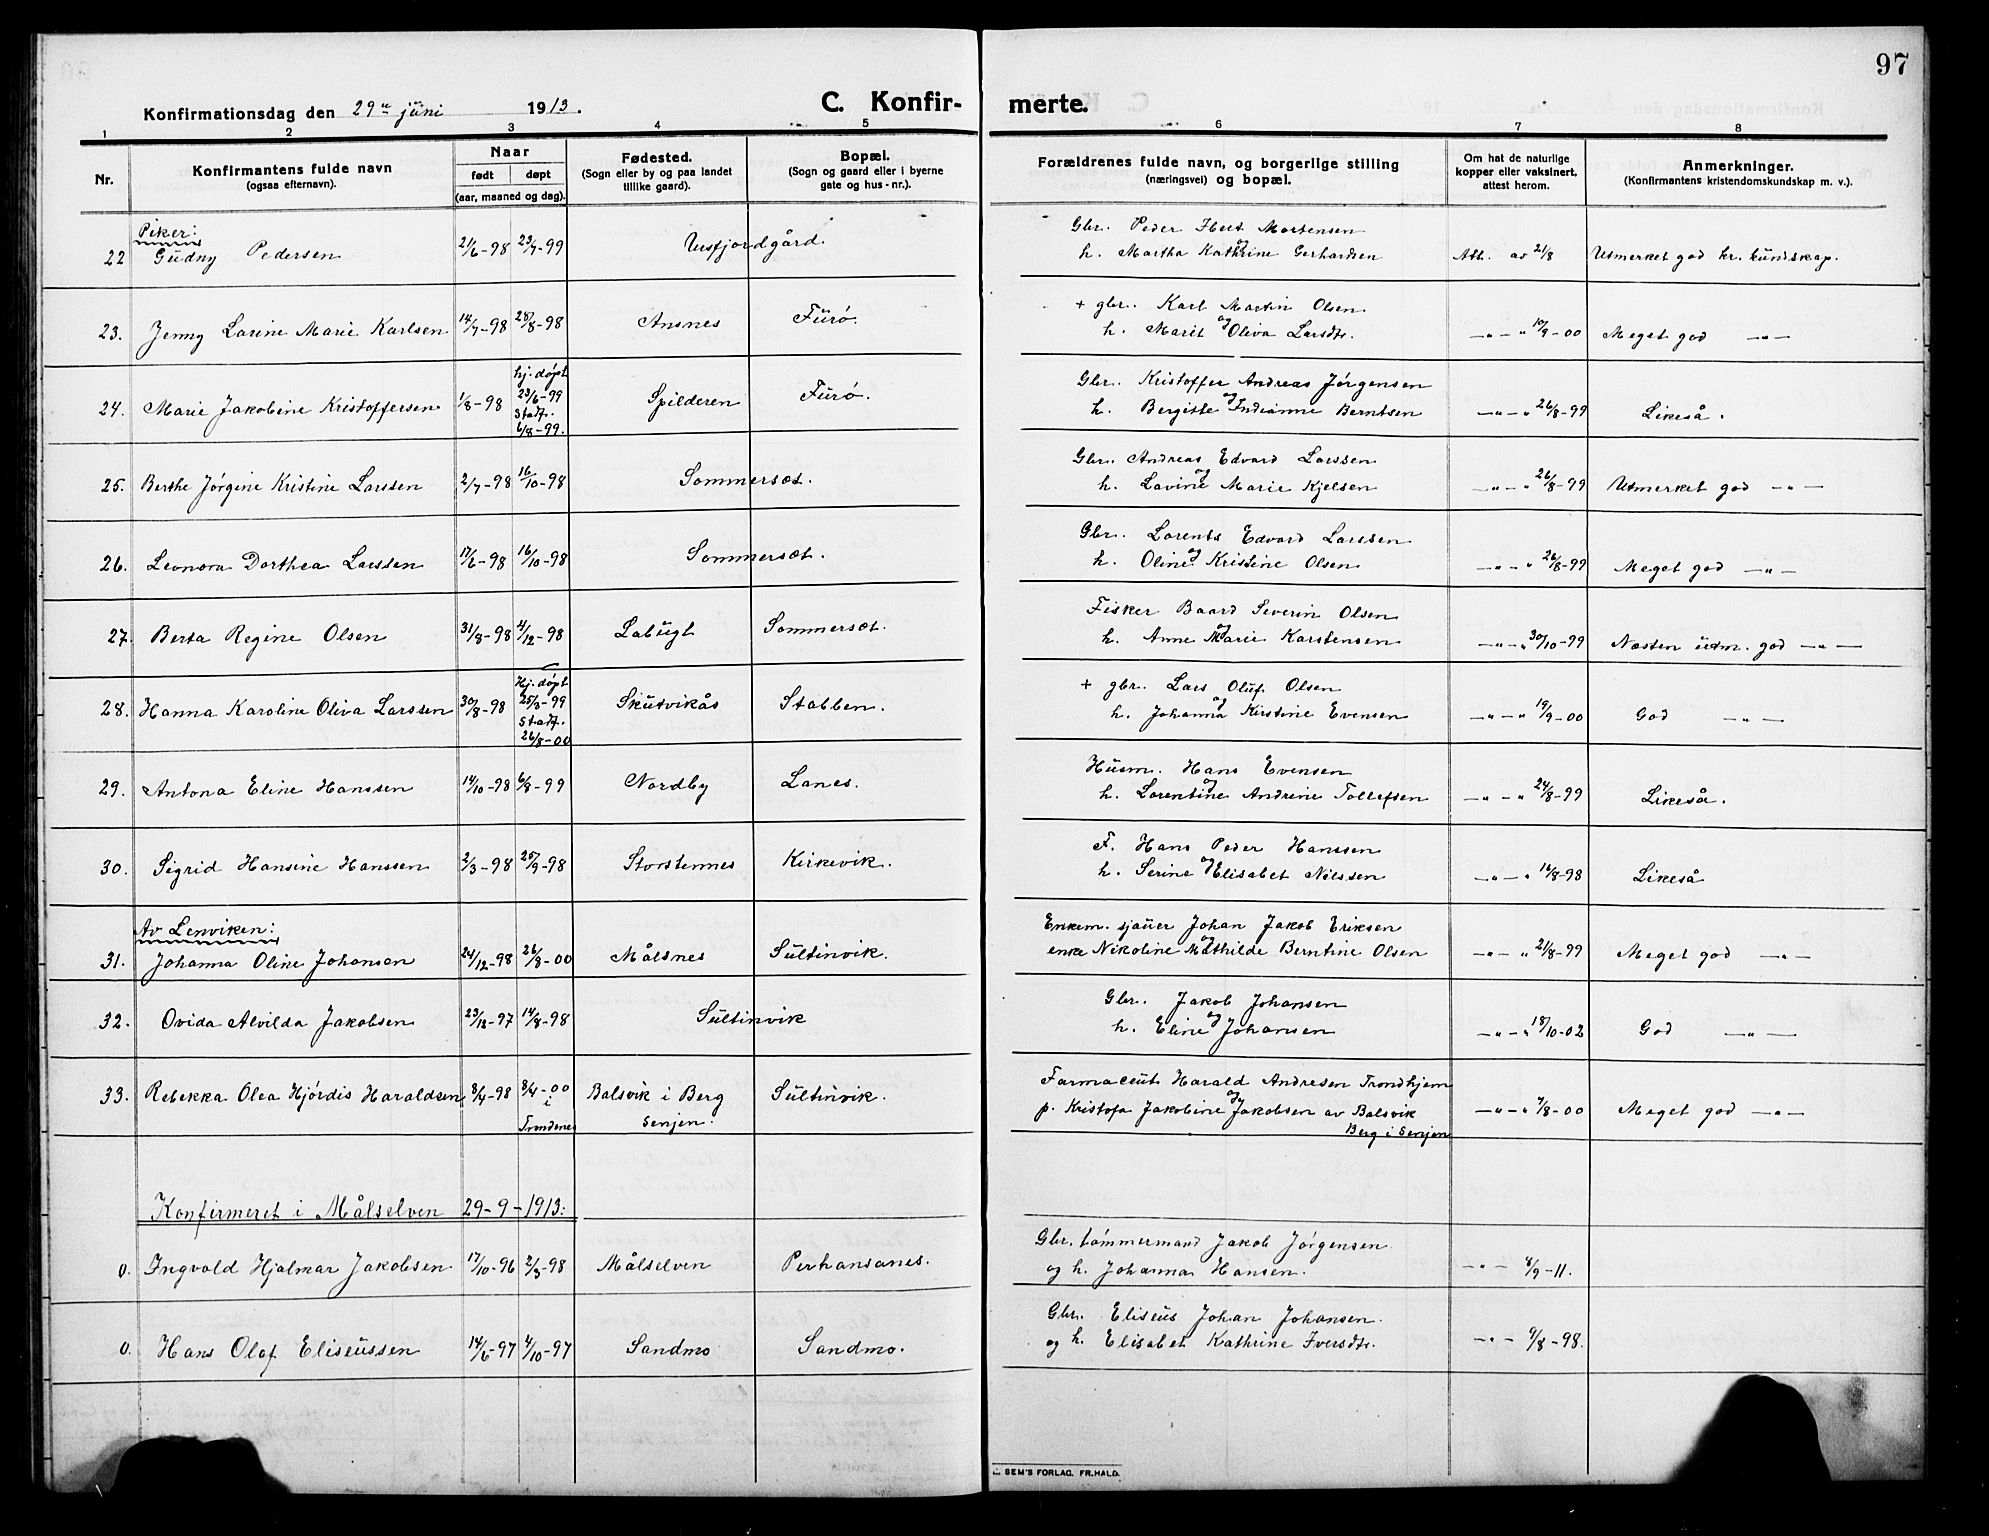 97
Konfirmationsdag den 29de juni 1913.
C. Konfir- merte.
1 2 3 4 5 6 7 8
Nr.
Konfirmantens fulde navn
(ogsaa efternavn).
Naar
født døpt
(aar, maaned og dag).
Fødested.
(Sogn eller by og paa landet
tillike gaard).
Bopæl.
(Sogn og gaard eller i byerne
gate og hus-nr.).
Forældrenes fulde navn, og borgerlige stilling
(næringsvei) og bopæl.
Om hat de naturlige
kopper eller vaksinert,
attest herom.
Anmerkninger.
(Konfirmantens kristendomskundskap m. v.).
Piker:
22 Gudny Pedersen 21/6-98 23/7-99 Usfjordgård.
Gbr. Peder Mortensen
og
h. Martha Kathrine Gerhardsen Att. av 21/8 Utmerket god kr. kundskap.
23. Jenny Lorine Marie Karlsen 14/7-98 28/8-98 Ansnes Furø.
+ gbr. Karl Martin Olsen
og
h. Marit Oliva Larsdtr. —"—" 10/9-00 Meget god —"—
24. Marie Jakobine Kristoffersen 1/8-98 hj. døpt
23/6-99
Stadf.
6/8-99. Spilderen Furø.
Gbr. Kristoffer Andreas Jørgensen
og
h. Bergitte Indianne Berntsen —"—" 26/8-99 Likeså.
25. Berthe Jørgine Kristine Larssen 2/7-98 16/10-98 Sommersæt.
Gbr. Andreas Edvard Larssen
og
h. Lavine Marie Kjelsen —"—" 26/8-99 Utmerket god —"—
26. Leonora Dorthea Larssen 17/6-98 16/10-98 Sommersæt.
Gbr. Lorents Edvard Larssen
og
h. Oline Kristine Olsen —"—" 26/8-99 Meget god —"—
27. Berta Regine Olsen 31/8-98 4/12-98 Labugt Sommersæt.
Fisker Baard Severin Olsen
og
h. Anne Marie Karstensen —"—" 30/10-99 Næsten utm. god —"—
28. Hanna Karoline Oliva Larssen 30/8-98 Hj. døpt
25/3-99
Stadf.
26/8-00 Skutvikås Stabben.
+ gbr. Lars Oluf Olsen
og
h. Johanna Kirstine Evensen —"—" 19/9-00 God —"—
29. Antona Eline Hanssen 14/10-98 6/8-99 Nordby Lanes.
Husm. Hans Evensen
og
h. Lorentine Andrine Tollefsen —"—" 24/8-99 Likeså.
30. Sigrid Hansine Hanssen 2/3-98 25/9-98 Storstennes Kirkevik.
F. Hans Peder Hanssen
og
h. Serine Elisabet Nilssen —"—" 16/8-98 Likeså
Av Lenviken:
31. Johanna Oline Johansen 24/12-98 26/8-00 Målsnes Sultinvik.
Enkem. sjauer Johan Jakob Eriksen
og
enke Nikoline Mathilde Berntine Olsen —"—" 21/8-99 Meget god —"—
32. Ovida Alvilda Jakobsen 23/12-97 14/8-98 Sultinvik
Gbr. Jakob Johansen
og
h. Eline Johansen —"—" 18/10-02 God —"—
33. Rebekka Olea Hjørdis Haraldsen 8/4-98 8/4-00
i
Trondenes Balsvik i Berg
Senjen. Sultinvik.
Farmaceut Harald Andresen Trondhjem
og
p. Kristofa Jakobine Jakobsen av Balsvik
Berg i Senjen —"—" 7/8-00 Meget god —"—
Konfirmeret i Målselven 29-9-1913:
0. Ingvald Hjalmar Jakobsen 17/10-96 2/3-98 Målselven Perhansanes.
Gbr. tømmermand Jakob Jørgensen
og h. Johanna Hansen. —"— 8/9-11.
0. Hans Olaf Eliseussen 14/6-97 4/10-97 Sandmo Sandmo.
Gbr. Eliseus Johan Johansen.
og h. Elisabet Kathrine Iversdtr. —"— 9/8-98.
SEM'S FORLAG. FR.HALD.